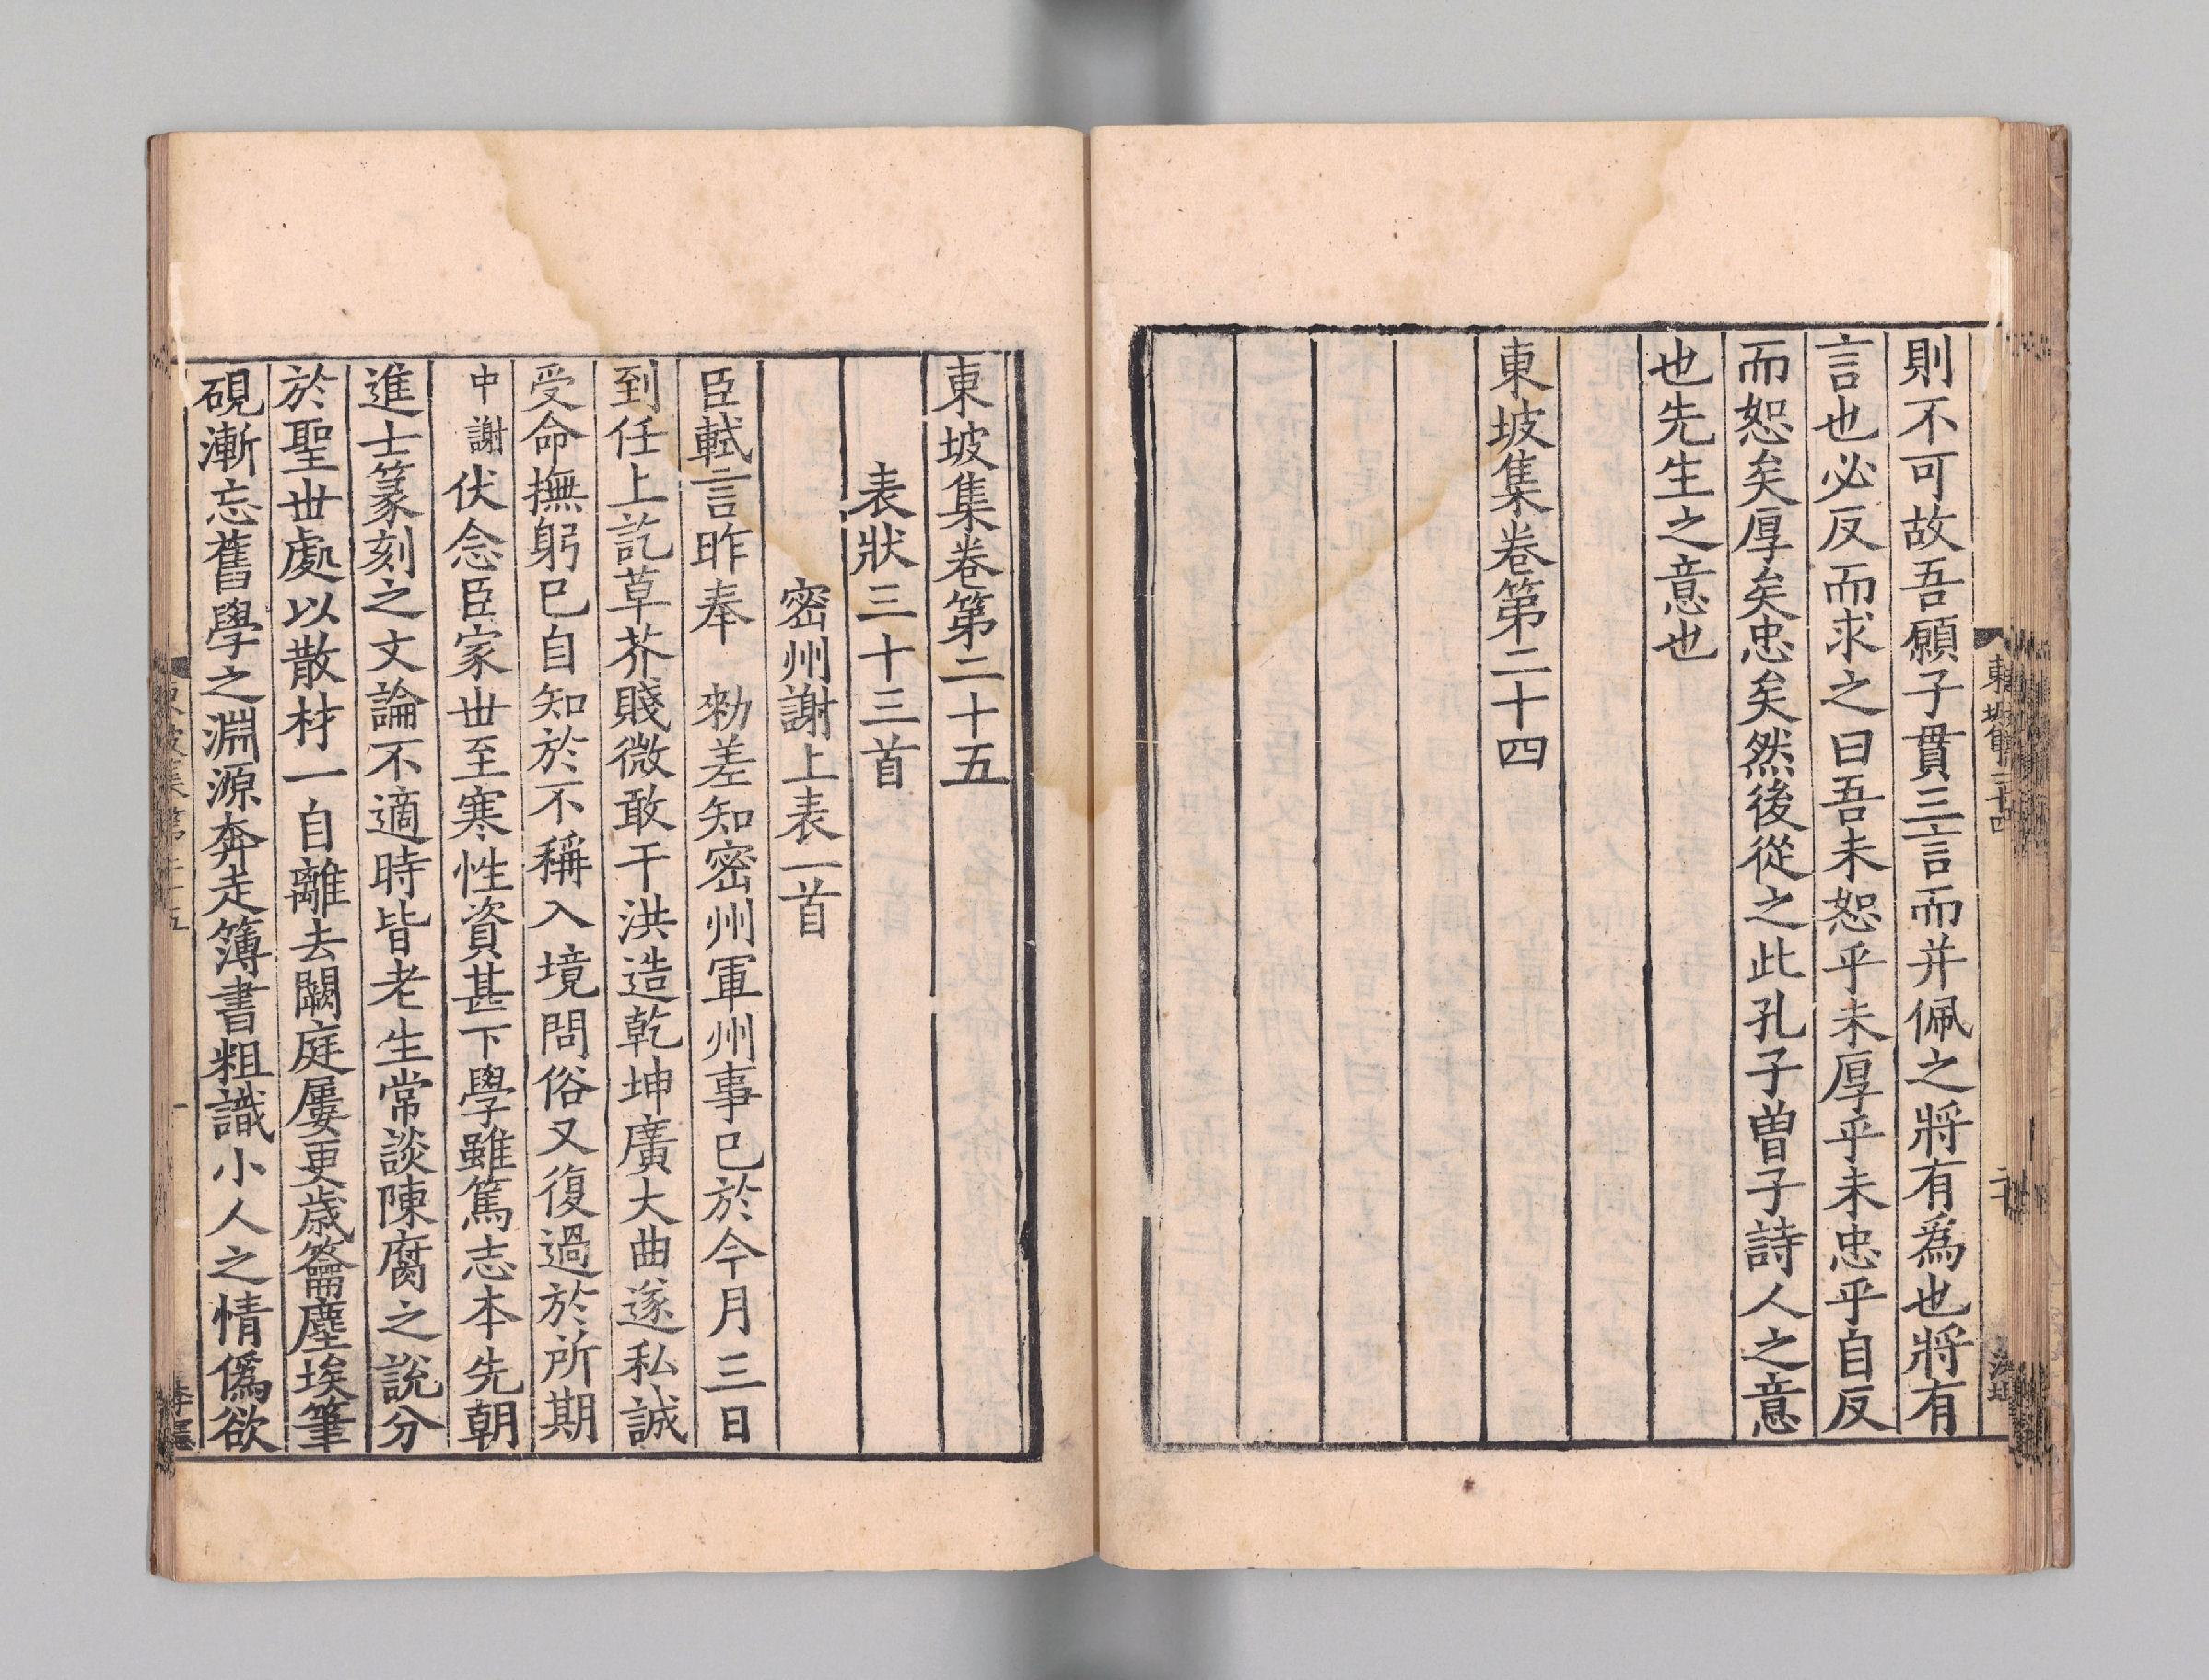 則不可故吾願子貫三言而并佩之將有爲也將有
言也必反而求之曰吾未恕乎未厚乎未忠乎自反
而恕矣厚矣忠矣然後從之此孔子曾子詩人之意
也先生之意也
東坡集卷第二十四
東坡集卷第二十五
表狀三十三首
密州謝上表一首
臣軾言昨奉 勑差知密州軍州事已於今月三日
到任上訖草芥賤微敢干洪造乾坤廣大曲遂私誠
受命撫躬已自知於不稱入境問俗又復過於所期
中謝伏念臣家世至寒性資甚下學雖篤志本先朝
進士篆刻之文論不適時皆老生常談陳腐之說分
於聖世處以散材一自離去闕庭屢更歲籥塵埃筆
硯漸忘舊學之淵源奔走簿書粗識小人之情僞欲